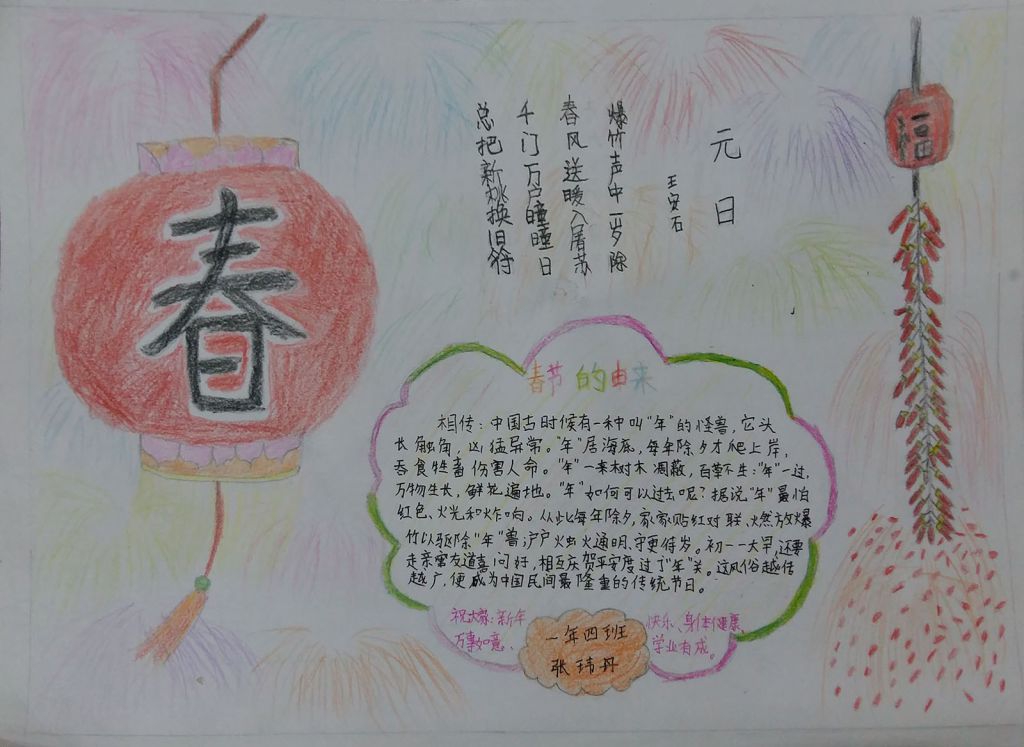 春
福
元日
王安石
爆竹声中一岁除
春风送暖入屠苏
千门万户瞳瞳日
总把新桃换旧符
春节的由来
相传:中国古时候有一种叫"年"的怪兽,它头
长触角,凶猛异常。"年"居海底,每年除夕才爬上岸,
吞食牲畜伤害人命。"年"一来树木凋蔽,百草不生;"年"一过,
万物生长,鲜花遍地。"年"如何可以过去呢?据说"年"最怕
红色、火光和炸响。从此每年除夕,家家贴红对联、燃放爆
竹以驱除"年"兽;户户火虫火通明、守更待岁。初一一大早,还要
走亲窜友道喜问好,相互庆贺平安度过了"年"关。这风俗越传
越广,便成为中国民间最隆重的传统节日。
祝大家:新年快乐、身体健康、
万事如意、学业有成。
一年四班
张玮丹